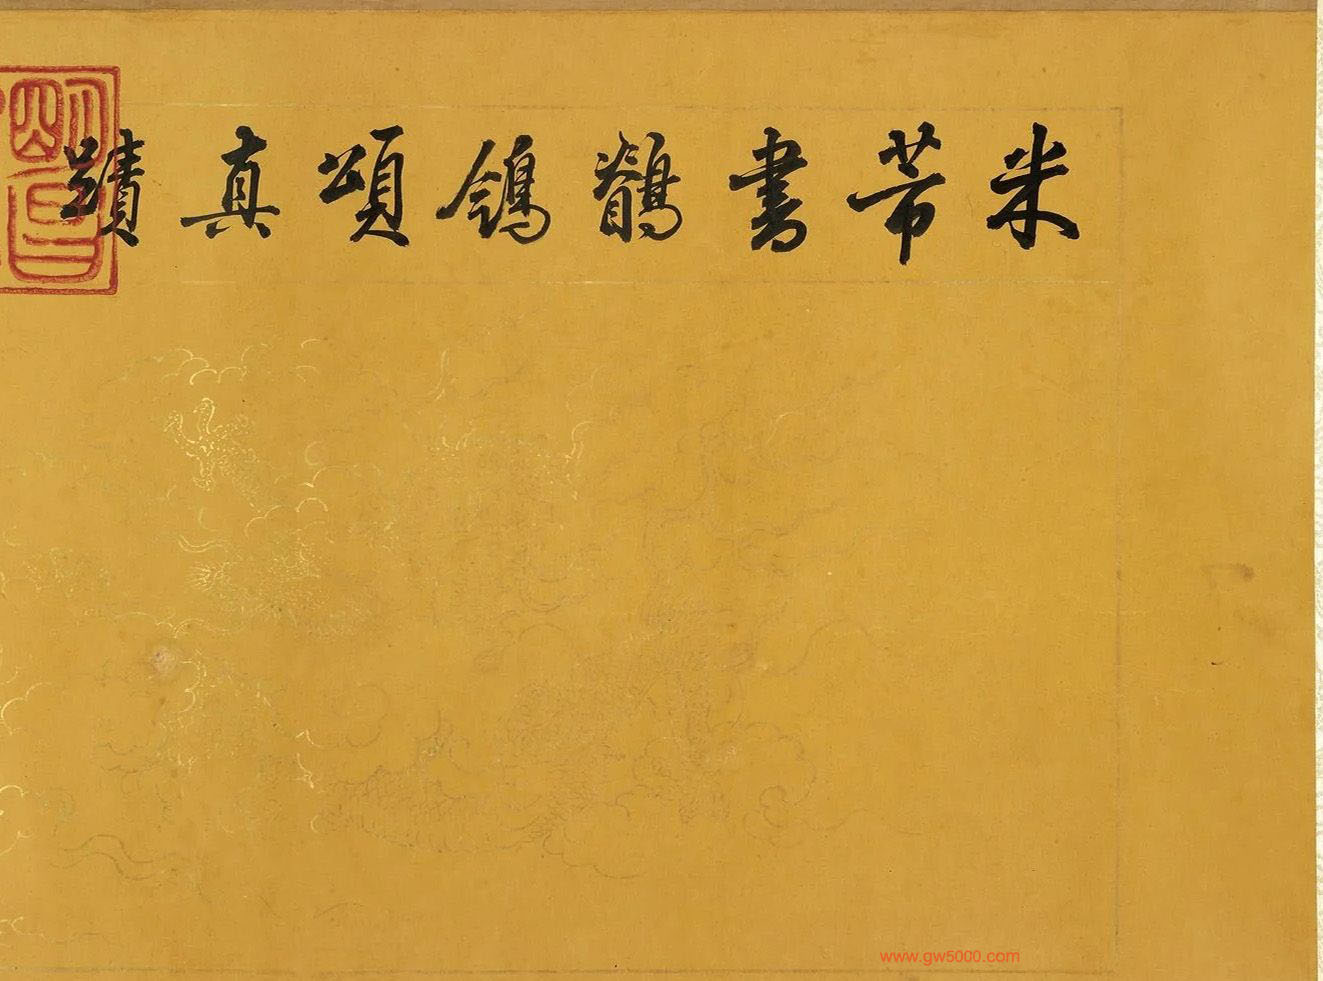 米芾書鶺鴒頌真蹟
明昌
www.gw5000.com